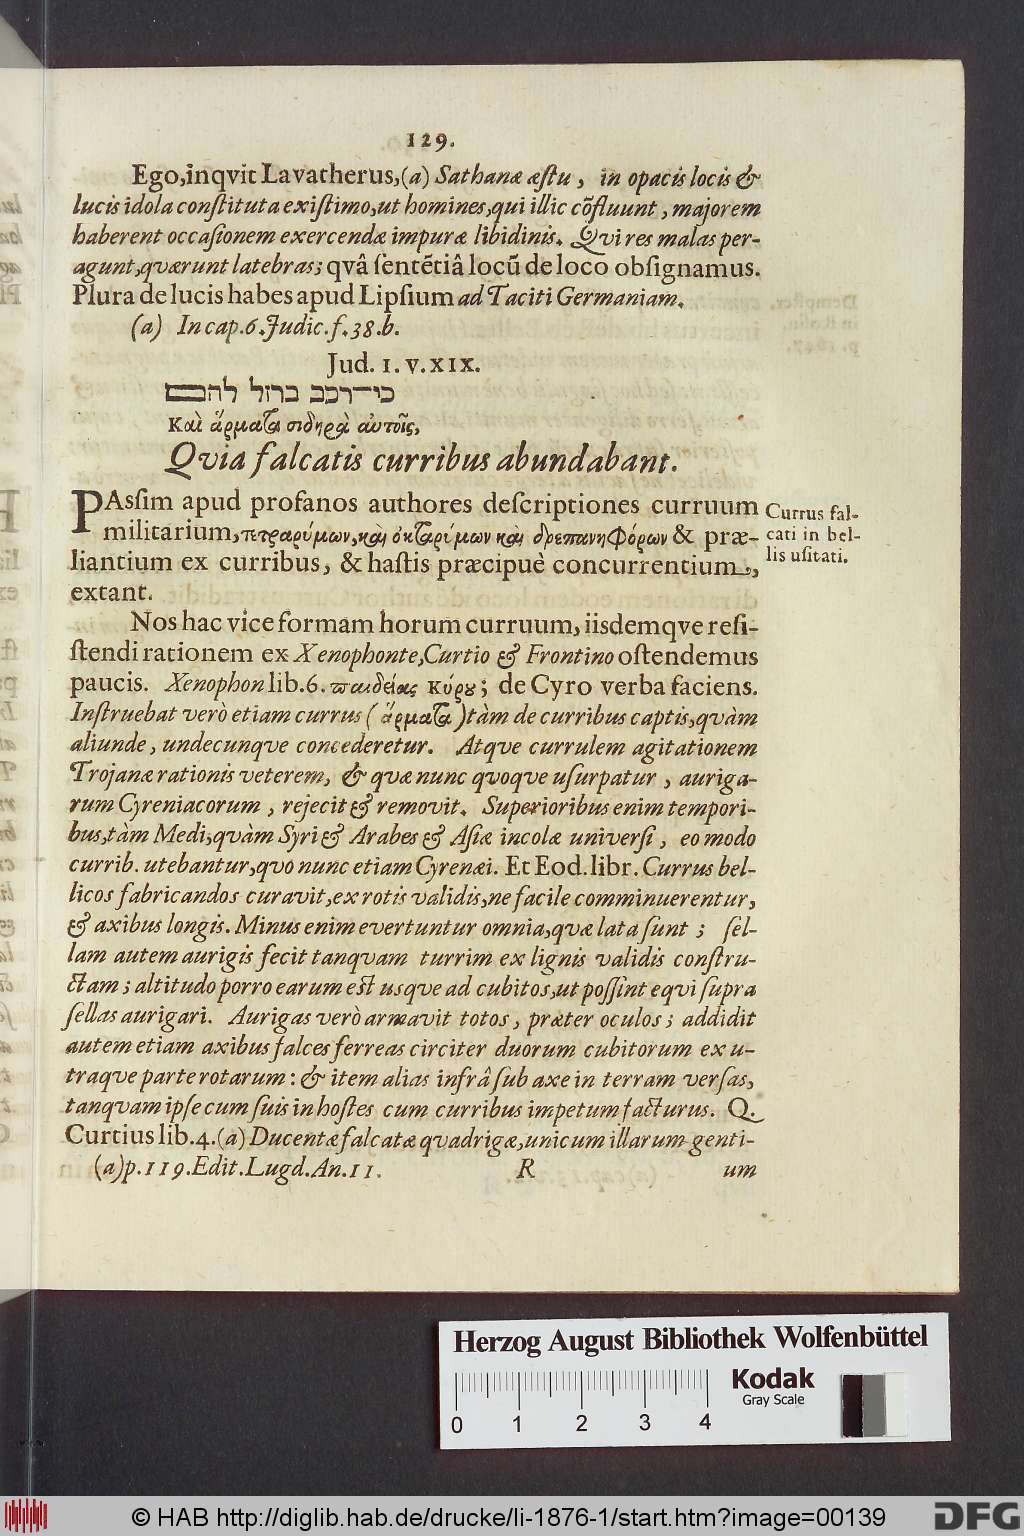 129.
Ego,inqvit Lavatherus,(a) Sathanæ æſtu, in opacis locis &
lucis idola conſtituta exiſtimo,ut homines,qui illic cõfluunt, majorem
haberent occaſionem exercendæ impuræ libidinis. Qvi res malas per-
agunt,quærunt latebras; qvâ ſentẽtiâ locũ de loco obſignamus.
Plura de lucis habes apud Lipſium ad Taciti Germaniam.
(a) In cap. 6. Judic. f. 38. b.
Jud. 1. v. XIX.
כי־רכב ברזל להם
Καὶ ἅρματα σιδηρὰ αὐτοῖς,
Qvia falcatis curribus abundabant.
PAſſim apud profanos authores deſcriptiones curruum
militarium, πετραρύμων, καὶ ὀκταρύμων καὶ δρεπανηφόρων & præ-
liantium ex curribus, & haſtis præcipuè concurrentium,
extant.
Currus fal-
cati in bel-
lis uſitati.
Nos hac vice formam horum curruum, iisdemqve reſi-
ſtendi rationem ex Xenophonte, Curtio & Frontino oſtendemus
paucis. Xenophon lib. 6. παιδείας Κύρου; de Cyro verba faciens.
Inſtruebat verò etiam currus (ἅρματα) tàm de curribus captis,quàm
aliunde, undecunqve concederetur. Atqve currulem agitationem
Trojanæ rationis veterem, & quæ nunc qvoqve uſurpatur, auriga-
rum Cyreniacorum, rejecit & removit. Superioribus enim tempori-
bus,tàm Medi,quàm Syri & Arabes & Aſiæ incolæ univerſi, eo modo
currib. utebantur,qvo nunc etiam Cyrenæi. Et Eod. libr. Currus bel-
licos fabricandos curavit,ex rotis validis,ne facile comminuerentur,
& axibus longis. Minus enim evertuntur omnia,quæ lata ſunt; ſel-
lam autem aurigis fecit tanquam turrim ex lignis validis conſtru-
ctam; altitudo porro earum est usque ad cubitos,ut poſſint equi ſupra
ſellas aurigari. Aurigas verò armavit totos, præter oculos; addidit
autem etiam axibus falces ferreas circiter duorum cubitorum ex u-
traqve parte rotarum: & item alias infrâ ſub axe in terram verſas,
tanqvam ipſe cum ſuis in hoſtes cum curribus impetum facturus. Q.
Curtius lib. 4. (a) Ducentæ falcatæ qvadrigæ,unicum illarum genti-
(a) p. 119. Edit. Lugd. An. 11. R um
Herzog August Bibliothek Wolfenbüttel
Kodak
Gray Scale
0 1 2 3 4
© HAB http://diglib.hab.de/drucke/li-1876-1/start.htm?image=00139
DFG